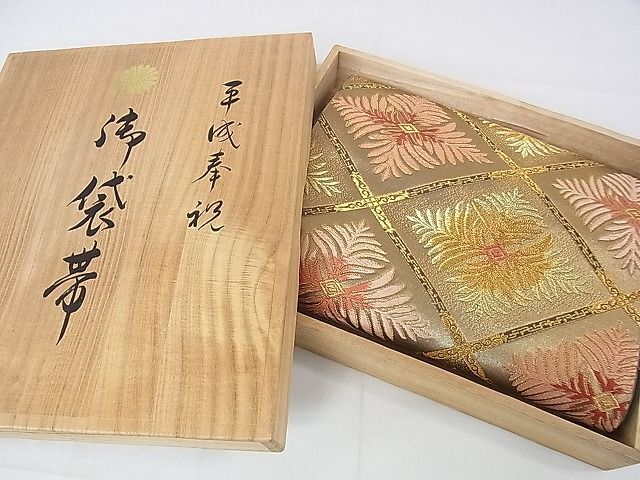 平成奉祝
御袋帯